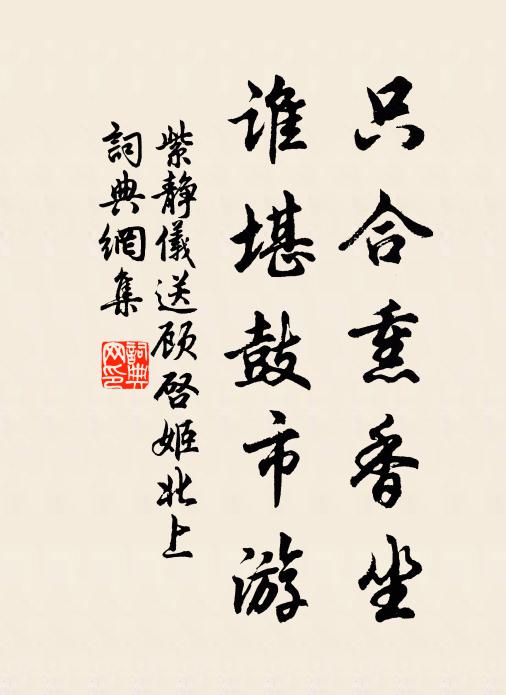 只合熏香坐
谁堪鼓市游
紫静儀送顾啓姬北上
詞典網集
詞典网印